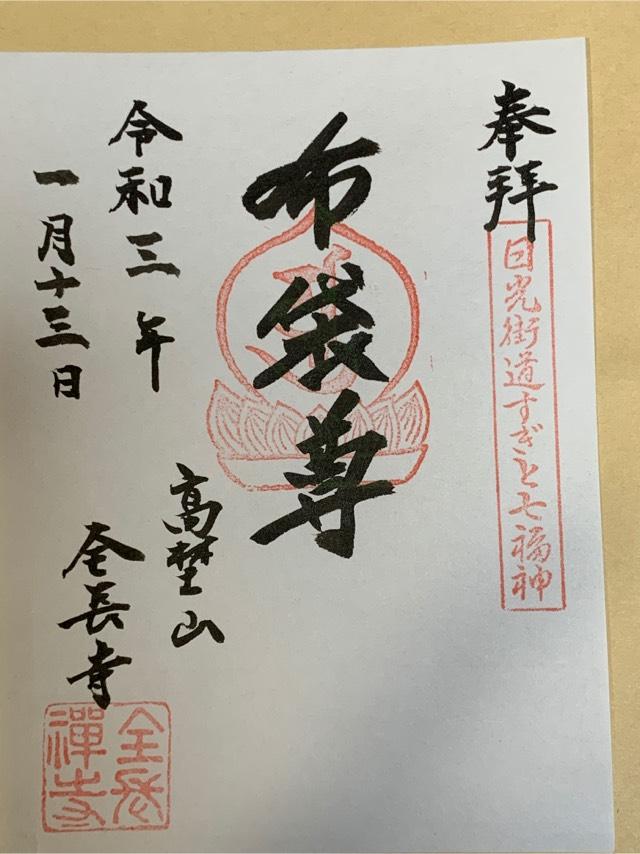 奉拝
日光街道すぎと七福神
布袋尊
高埜山
全長寺
令和三年
一月十三日
全長
禅寺